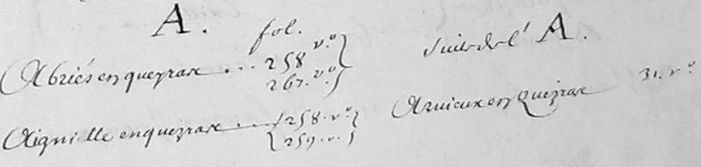 A.
fol.
Abriés en queyras ... 258 v.º
267. v.º
Aiguille en queyras ... 258. v.º
259. v.
Suite de l'A.
Arvieux en Queyras 31. v.º